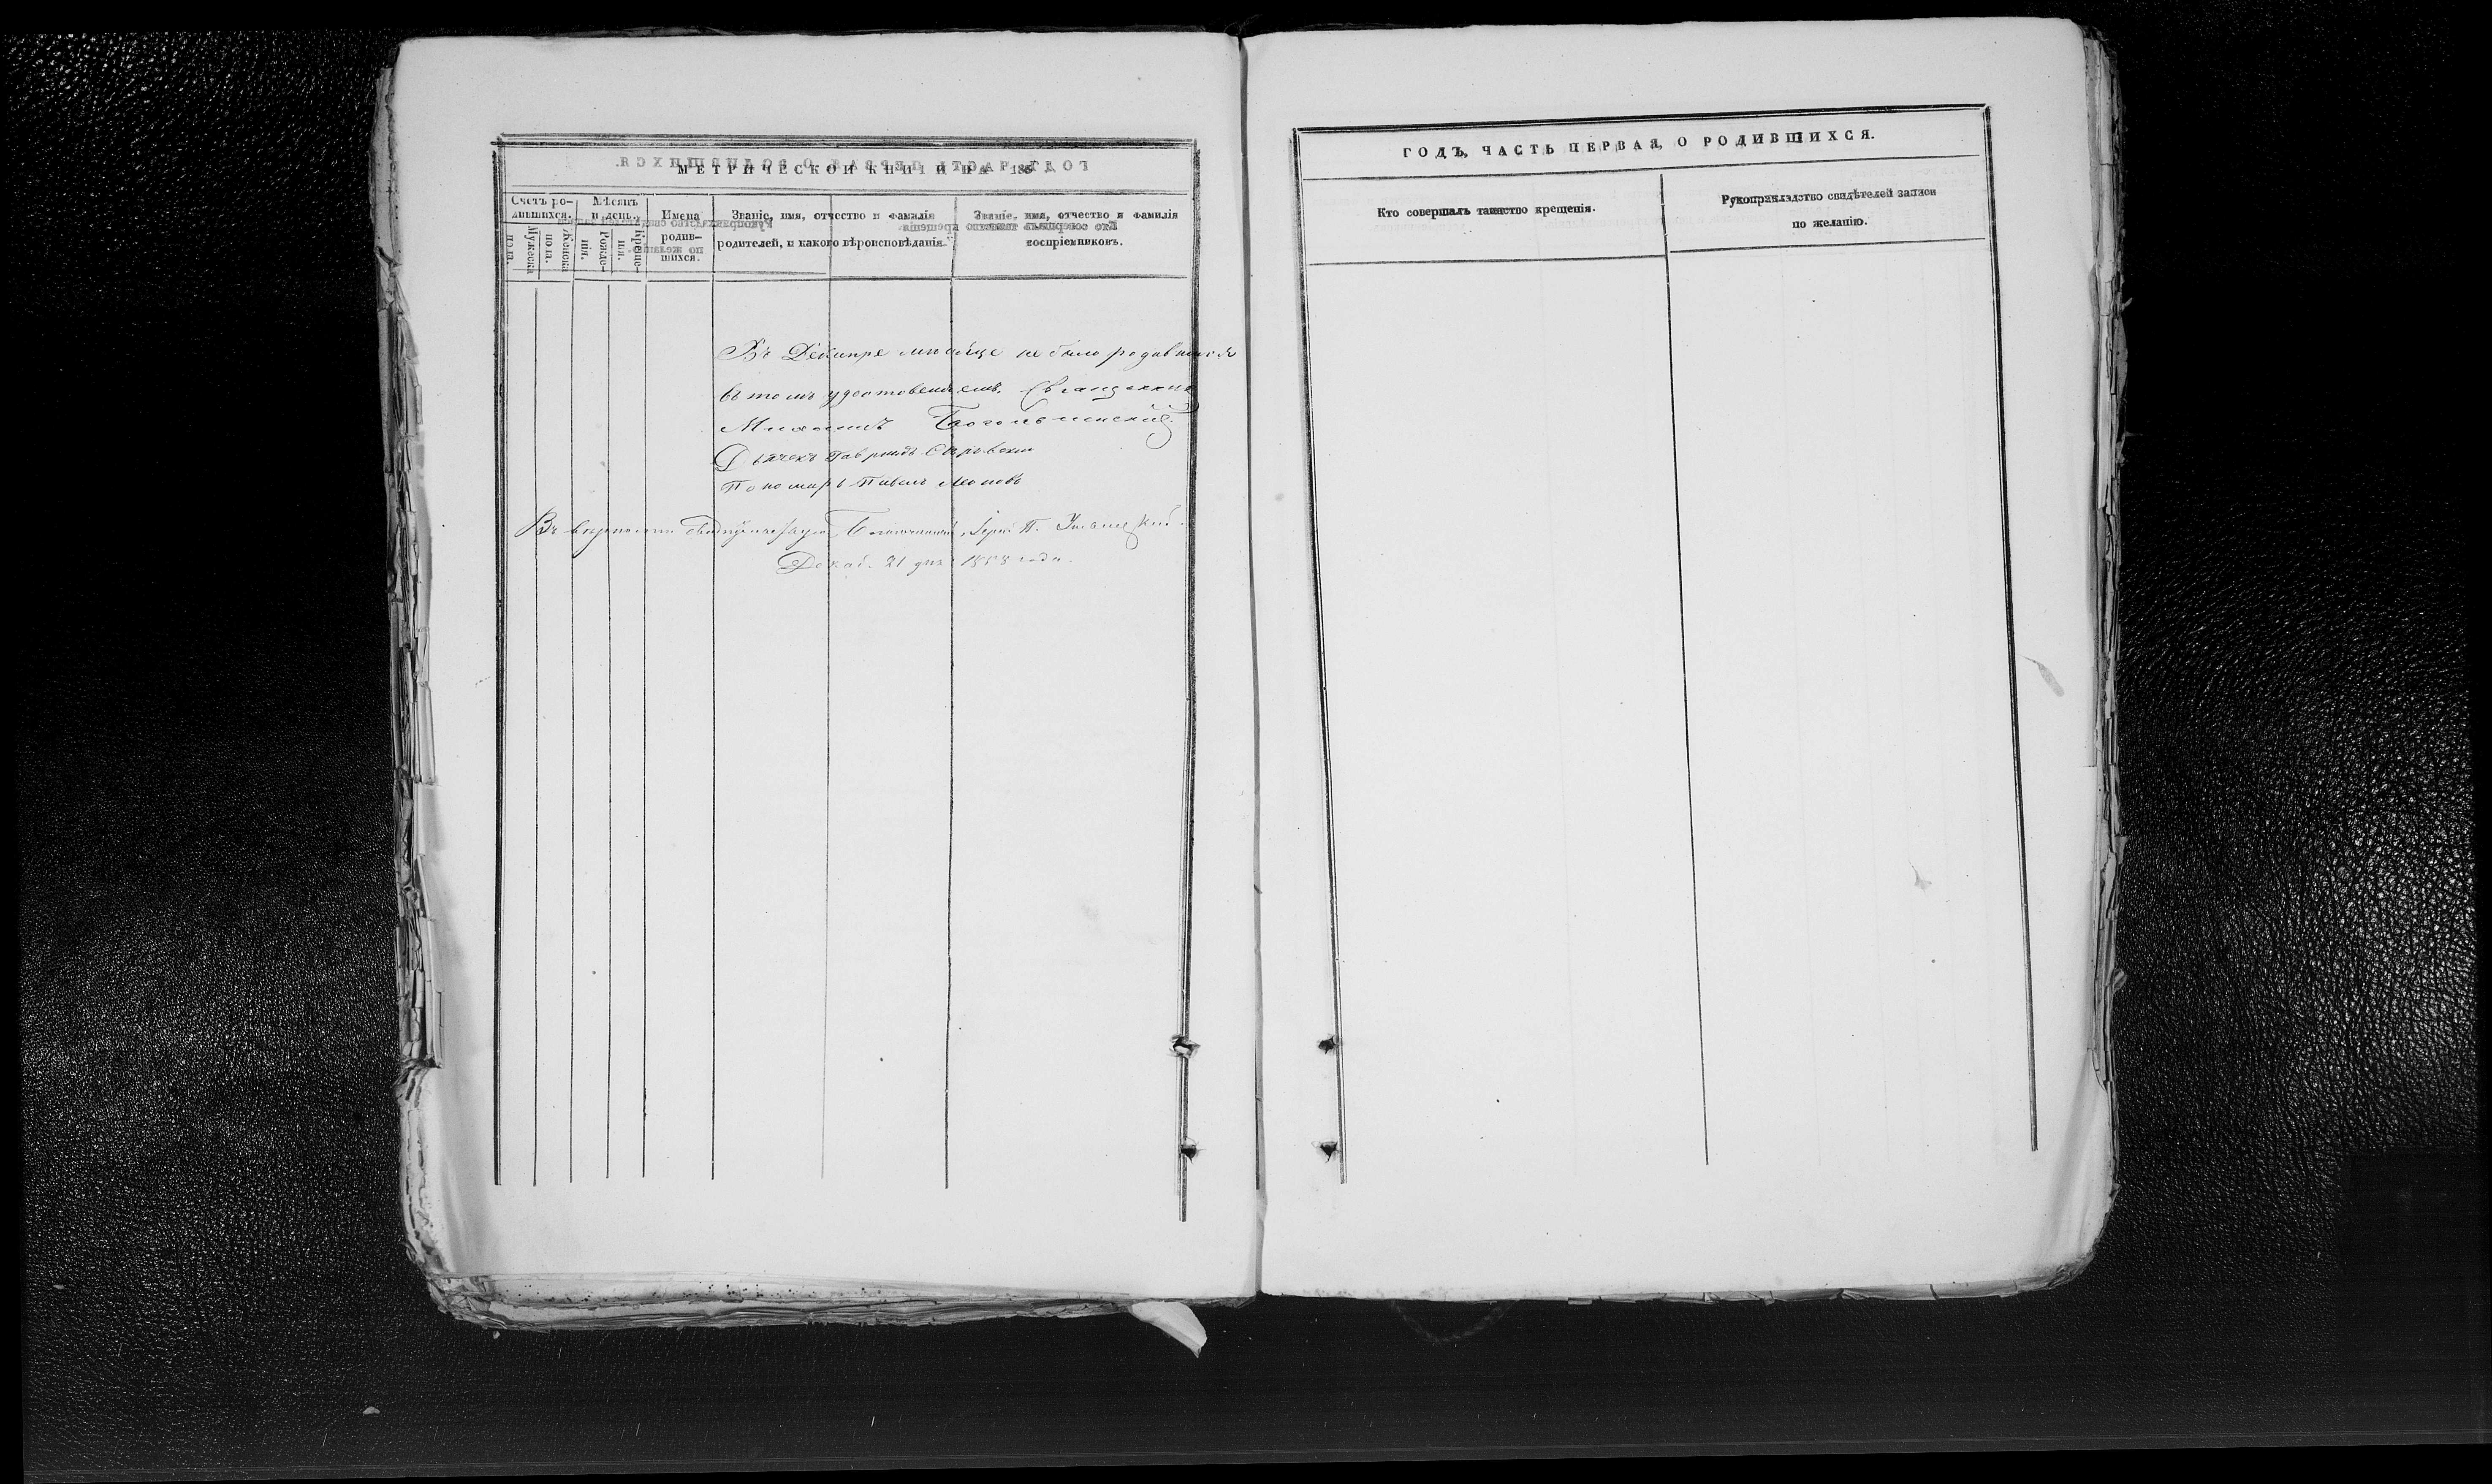 МЕТРИЧЕСКОЙ КНИГИ НА 185
Счетъ ро-
дившихся.
Мѣсяцъ
и день.
Мужеска
пола.
Женска
пола.
Рожде-
нія.
Креще-
нія.
Имена
родив-
шихся.
Званіе, имя, отчество и фамилія
родителей, и какого вѣроисповѣданія.
Званіе, имя, отчество и фамилія
воспріемниковъ.
Въ Декапре мѣсяце не было родившихся
въ томъ удостоверяемъ. Священникъ
Михаилъ
Дьячекъ Гавріилъ
Пономарь Павелъ Поповъ
Въ верности
Декаб. 21 дня 1858 года.
ГОДЪ, ЧАСТЬ ПЕРВАЯ, О РОДИВШИХСЯ.
Кто совершалъ таинство крещенія.
Рукоприкладство свидѣтелей записи
по желанію.